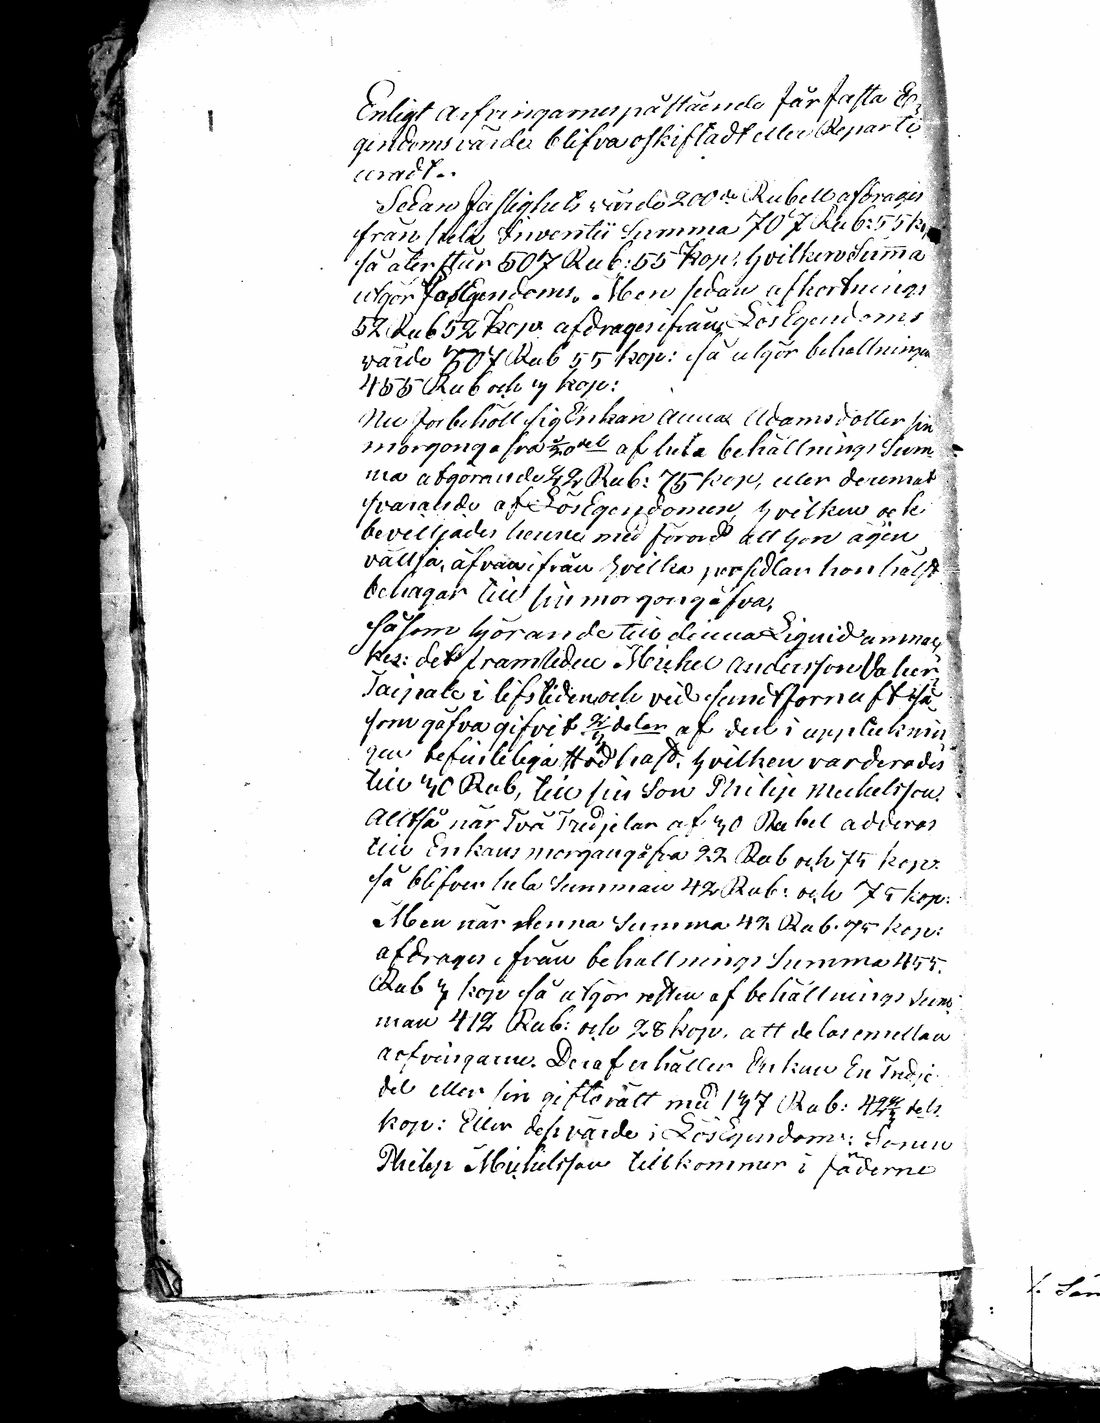 Enligt arfvingarnes påstående får fasta E-
gendomsvärdet blifva oskiftadt eller Reparti
ceradt..
Sedan fastighets värdet 200de Rubell afdrages
från hela Inventii Summa 707 Rub: 55 kop
så åter står 507 Rub: 55 kop: hvilken Summa
utgör LösEgendoms. Men sedan afkortnings
52 Rub 52 kop. afdrages ifrån LösEgendoms
värde 507 Rub 55 kop: så utgör behållningen
455 Rub och 3 kop:
Nu förbehöll sig Enkan Anna Adamsdotter sin
morgongåfva 1/20 del af hela behållnings Sum-
ma utgörande 22 Rub: 75 kop, eller deremot
svarande af LösEgendomen, hvilken ock
beviljades henne med förord att hon ägen
välja, äfvan ifrån hvilka persedlar hon hälst
behagar till sin morgongåfva.
Såsom hörande till denna Liquid anmär
kes: det framledne Michel Andersson Valier
Taipale i lifstiden och vid sundt förnuft så
som gåfva gifvit 2/3 delar af den i uppteckning
gen befintlige häst, hvilken varderades
till 30 Rub, till sin Son Philip Michelsson.
Alltså när Två Tredjelar af 30 Rubel adderas
till Enkans morgangåfva 22 Rub och 75 kop.
så blifver hela Summan 42 Rub: och 75 kop:
Men när denna Summa 42 Rub. 75 kop:
afdrages ifrån behållnings Summa 455.
Rub 3 kop så utgör resten af behållnings Sum
man 412 Rub: och 28 kop. att delas emellan
arfvingarne. Deraf erhåller Enkan En Tredje
del eller sin giftorätt med 137 Rub: 42 2/3 dels
kop: Eller dess värde i LösEgendom: Sonen
Philip Michelsson tillkommer i fäderne